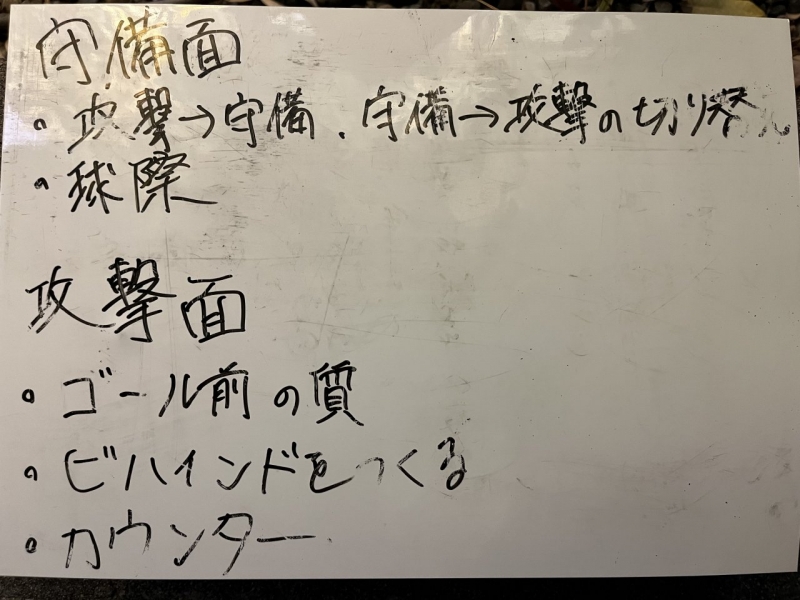 守備面
・攻撃→守備、守備→攻撃の切り替え
・球際
攻撃面
・ゴール前の質
・ビハインドをつくる
・カウンター